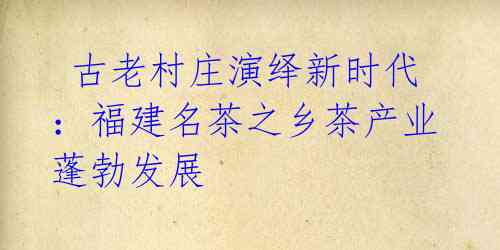 古老村庄演绎新时代
：福建名茶之乡茶产业
蓬勃发展